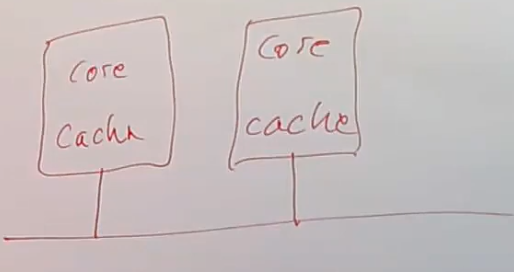 Core
Cache
Core
cache